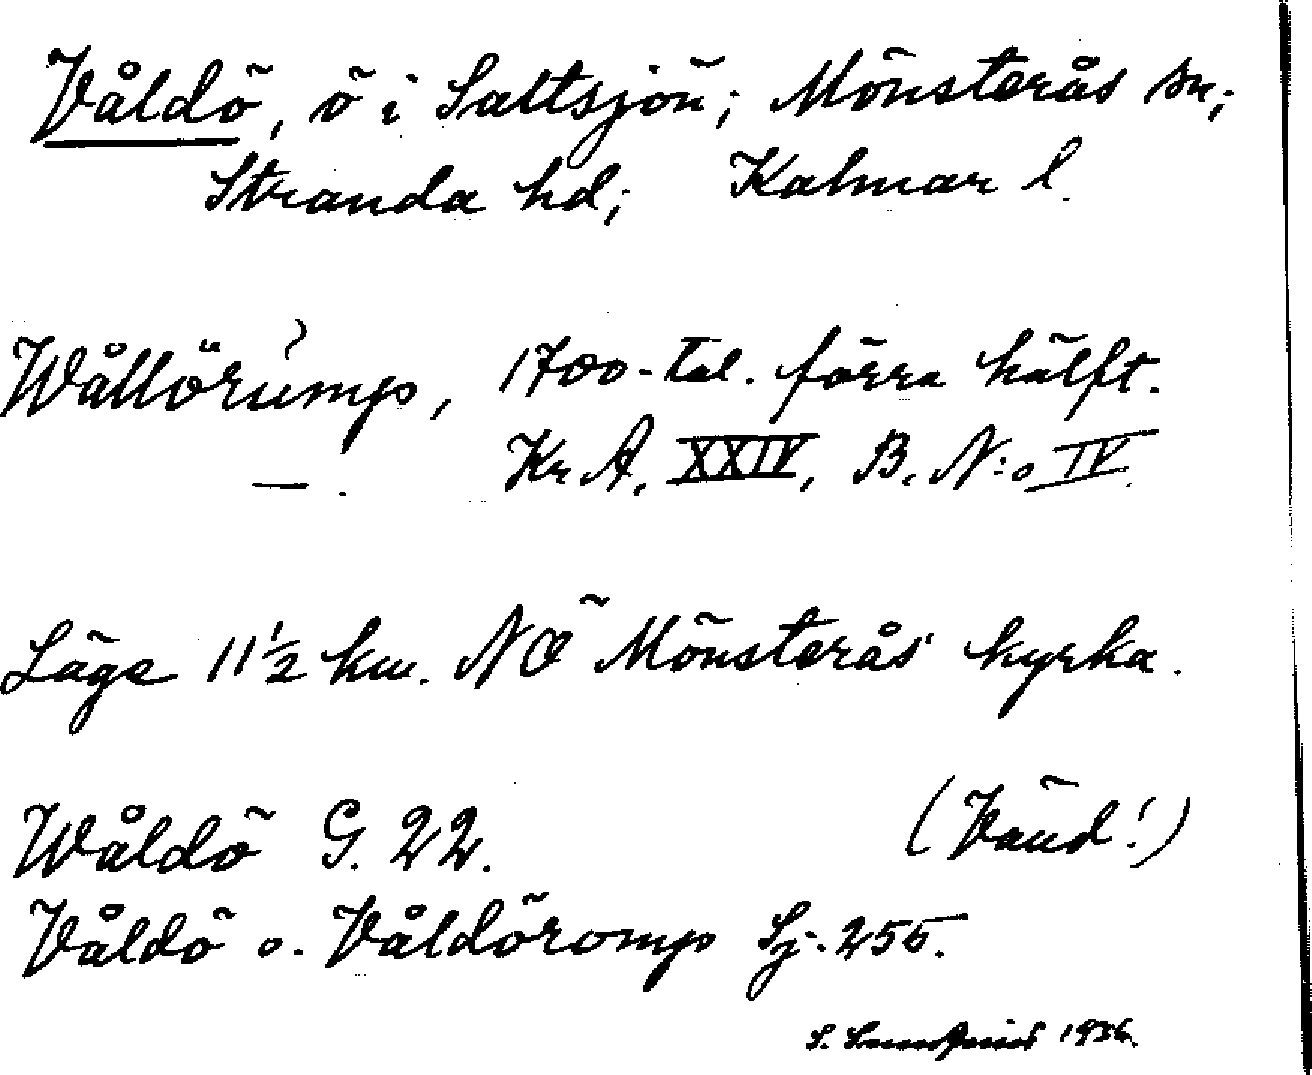 Våldö, ö i Saltsjön; Mönsterås sn;
Stranda hd; Kalmar l.
Wållörump, 1700-tal. förra hälft.
— . Kr. A. XXIV, B. N:o IV.
Läge 11 1/2 km. NÖ Mönsterås kyrka.
Wåldö G. 22.
(Vänd!)
Våldö o. Våldöromp Sj. 255.
S. 1936.